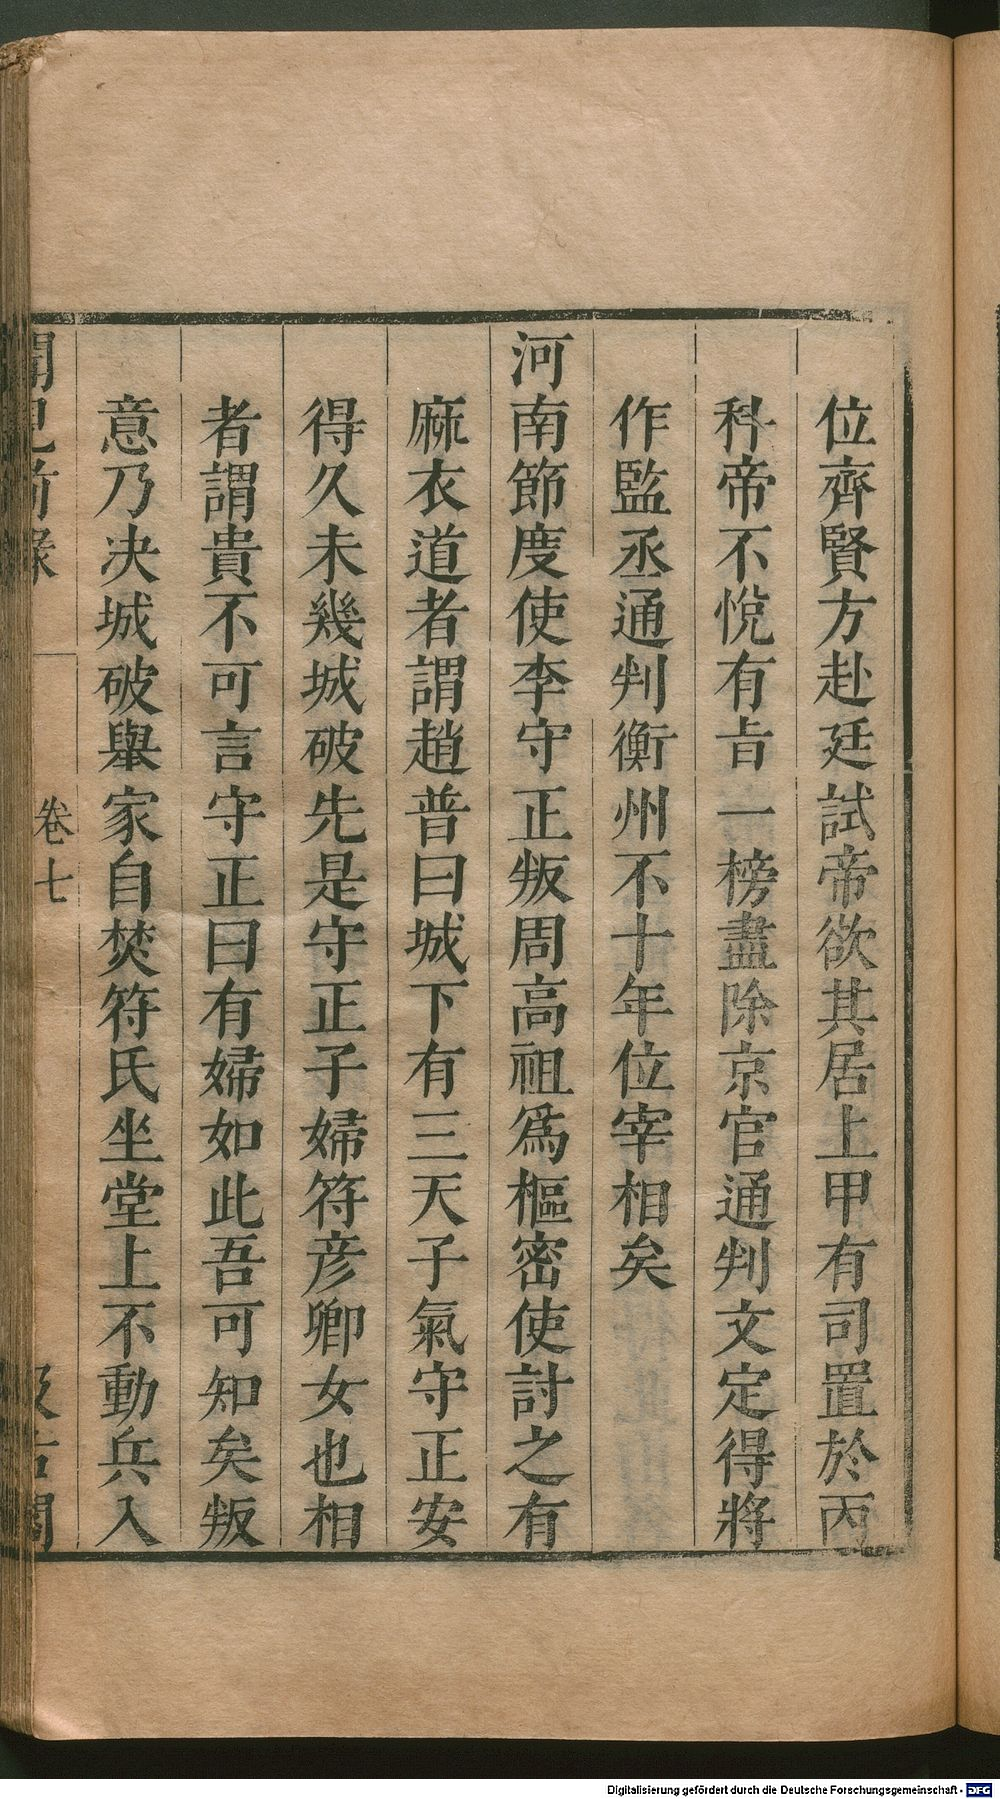 位齊賢方赴廷試帝欲其居上甲有司置於丙
科帝不悅有旨一榜盡除京官通判文定得將
作監丞通判衡州不十年位宰相矣
河南節度使李守正叛周高祖爲樞密使討之有
麻衣道者謂趙普曰城下有三天子氣守正安
得久未幾城破先是守正子婦符彥卿女也相
者謂貴不可言守正曰有婦如此吾可知矣叛
意乃決城破舉家自焚符氏坐堂上不動兵入
聞見前錄
卷七
汲古閣
Digitalisierung gefördert durch die Deutsche Forschungsgemeinschaft - DFG